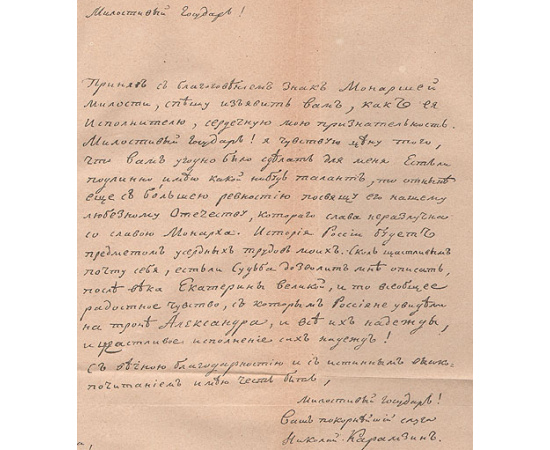 Милостивый Государь!
Принявъ съ благоговѣніемъ знакъ Монаршей
милости, спѣшу изъявить вамъ, какъ ея
Исполнителю, сердечную мою признательность.
Милостивый Государь! я чувствую цѣну того,
что вамъ угодно было сдѣлать для меня. Естьли
подлинно имѣю какой нибудь талантъ, то отнынѣ
еще съ бо́льшею ревностію посвящу его нашему
любезному Отечеству, котораго слава неразлучна
со славою Монарха. Исторія Россіи будетъ
предметомъ усердныхъ трудовъ моихъ. Сколь щастливымъ
почту себя, естьли Судьба дозволитъ мнѣ описать,
послѣ вѣка Екатерины великой, и то всеобщее
радостное чувство, съ которымъ Россіяне увидѣли
на тронѣ Александра, и всѣ ихъ надежды,
и щастливое исполненіе сихъ надеждъ!
Съ вѣчною благодарностію и съ истиннымъ высоко-
почитаніемъ имѣю честь быть,
Милостивый Государь!
Вашъ покорнѣйшій слуга
Николай Карамзинъ.